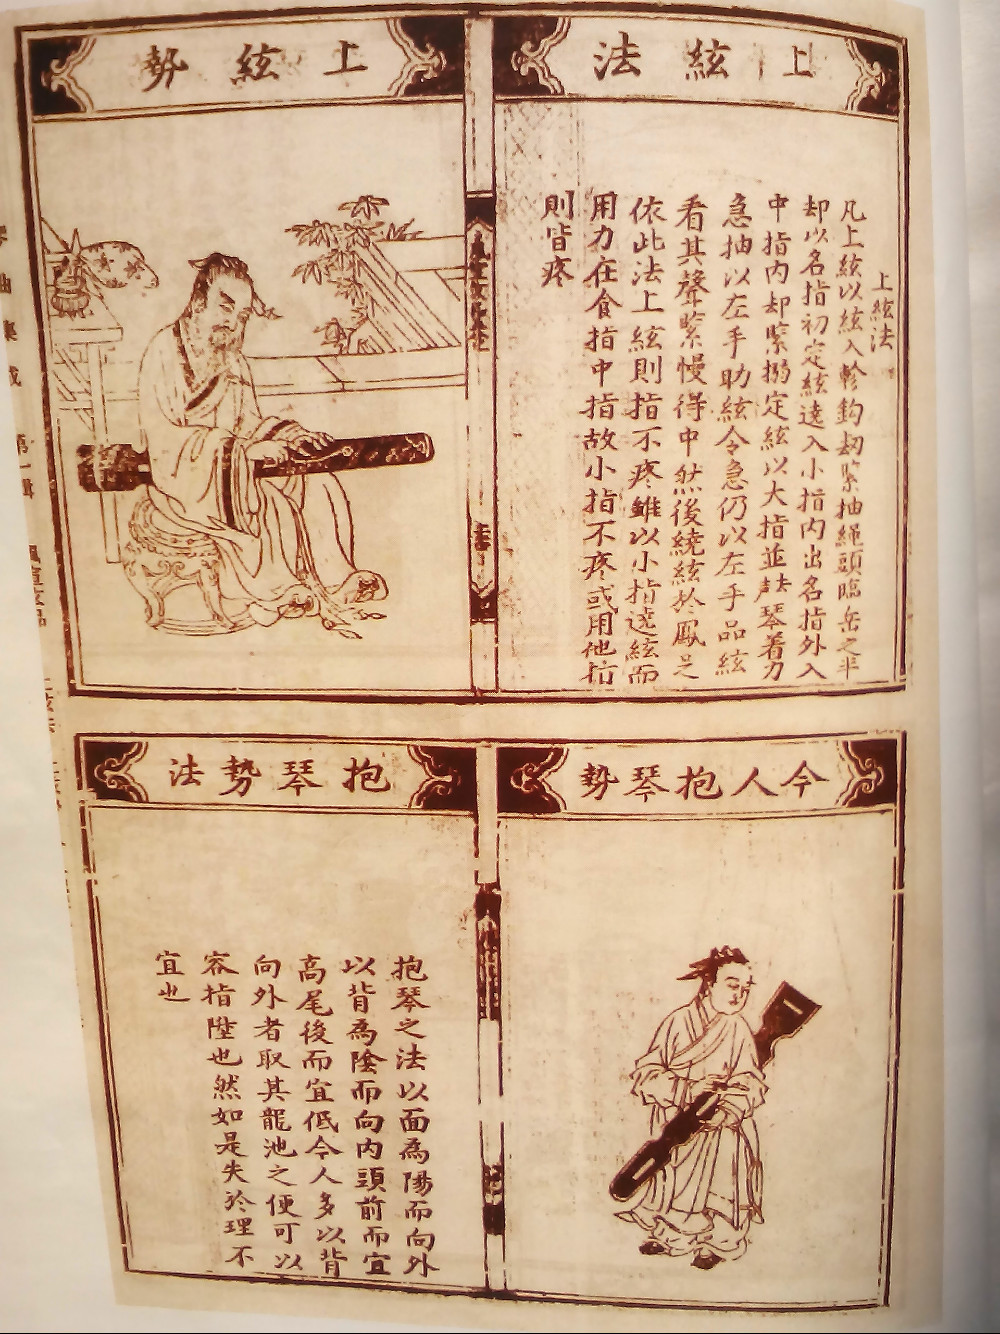 上絃法
上絃法
凡上絃以絃入軫鈎刼緊抽繩頭臨岳之半
却以名指初定絃遶入小指内出名指外入
中指内却緊搦定絃以大指並琴着力
急抽以左手助絃令急仍以左手品絃
看其聲緊慢得中然後繞絃於鳳足
依此法上絃則指不疼雖以小指遶絃而
用力在食指中指故小指不疼或用他指
則皆疼
上絃勢
今人抱琴勢
抱琴勢法
抱琴之法以面為陽而向外
以背為陰而向内頭前而宜
高尾後而宜低今人多以背
向外者取其龍池之便可以
容指陞也然如是失於理不
宜也
第一輯